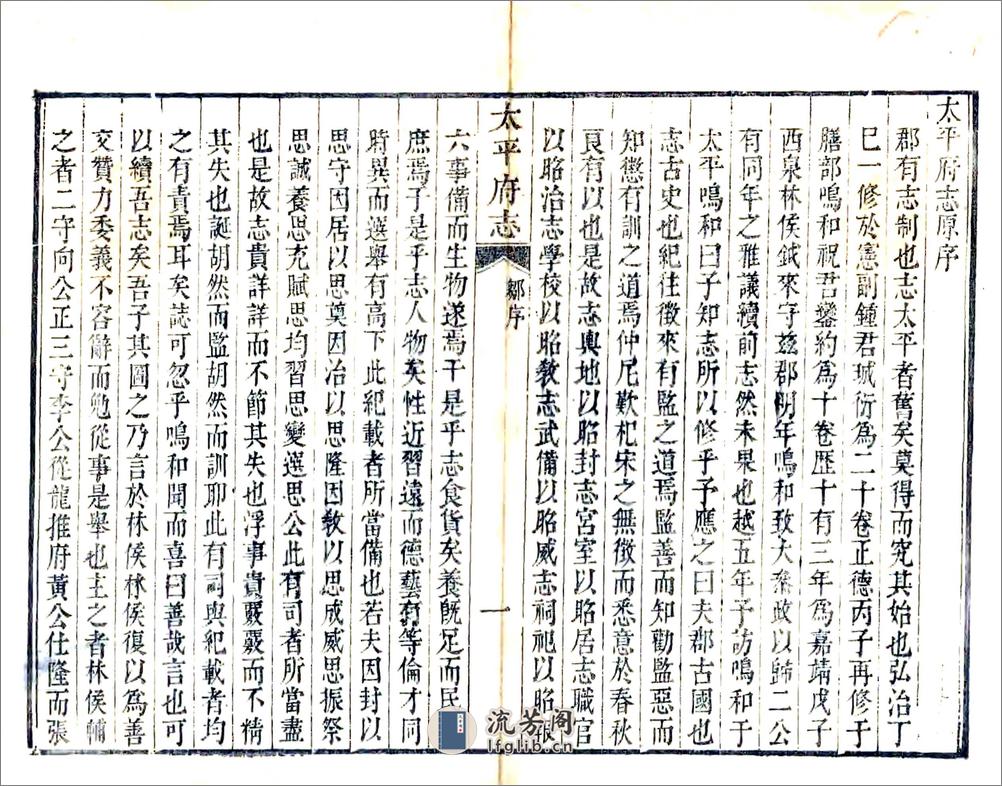 太平府志原序
郡有志制也志太平者舊矣莫得而究其始也弘治丁
巳一修於憲副鍾君珹衍為二十卷正德丙子再修于
膳部鳴和祝君鑾約為十卷歷十有三年為嘉靖戊子
西泉林侯鉞來守茲郡明年鳴和致大叅政以歸二公
有同年之雅議續前志然未果也越五年予訪鳴和于
太平鳴和曰子知志所以修乎予應之曰夫郡古國也
志古史也紀往徵來有監之道焉監善而知勸監惡而
知懲有訓之道焉仲尼歎杞宋之無徵而悉意於春秋
良有以也是故志輿地以昭封志宮室以昭居志職官
以昭治志學校以昭敎志武備以昭威志祠祀以昭報
太平府志
鄒序
一
六事備而生物遂焉于是乎志食貨矣養旣足而民
庶焉于是乎志人物矣性近習遠而德藝有等倫才同
時異而選舉有高下此紀載者所當備也若夫因封以
思守因居以思奠因治以思隆因敎以思成威思振祭
思誠養思充賦思均習思變選思公此有司者所當盡
也是故志貴詳詳而不節其失也浮事貴覈覈而不精
其失也誕胡然而監胡然而訓耶此有司與紀載者均
之有責焉耳矣誌可忽乎鳴和聞而喜曰善哉言也可
以續吾志矣吾子其圖之乃言於林侯林侯復以為善
交贊力委義不容辭而勉從事是舉也主之者林侯輔
之者二守向公正三守李公從龍推府黃公仕隆而張
流芳阁
lfglib.cn